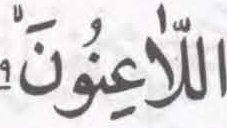 اللّٰعِنُونَ ۙ